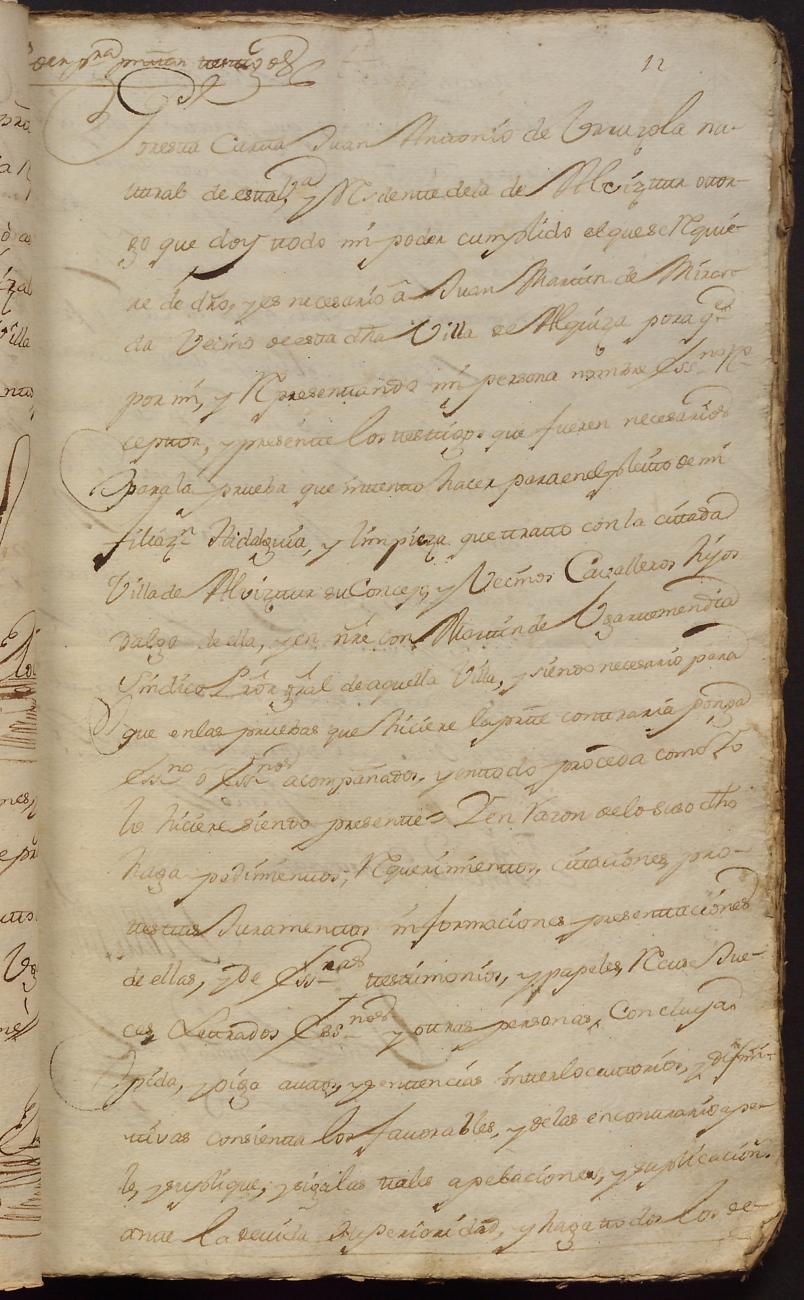 12
Por esta Carta Juan Antonio de Urruzola na-
tural de esta Vª y Residente de la de Alviztur otor-
go que doy todo mi poder cumplido el que se Requie-
re de dro, y es necesario â Juan Martin de Miran-
da Vecino de esta dha Villa de Alquiza para q.e
por mi, y Representando mi persona nombre Essno Re-
ceptor, y presente los testigos que fueren necesarios
para la prueba que intento hacer para en el pleito de mi
filiazn Hidalguia, y limpieza que tratto con la citada
Villa de Alviztur su Concejo, y Vecinos Cavalleros hijos
dalgo de ella, y en nre con Martin de Ugartemendia
Sindico Prór gral de aquella Villa, y siendo necesario para
que en las pruebas que hiciere la prte contraria ponga
Essno o Essnos acompañados, y en todo proceda como Yo
lo hiciere siendo presente= Y en razon de lo suso dho
haga pedimentos, Requerimientos, citaciones, pro-
testas Juramentos informaciones presentaciones
de ellas, y de Essras testimonios, y papeles, Recuse Jue-
ces Letrados Essnos y otras personas, Concluya
pida, y oiga autos, y sentencias interlocutorios, y difini-
tivas consienta los favorables, y de las en contrario ape-
le, y suplique, y siga las tales apelaciones, y suplicacions.
ante la devida Superioridad, y haga todos los de-